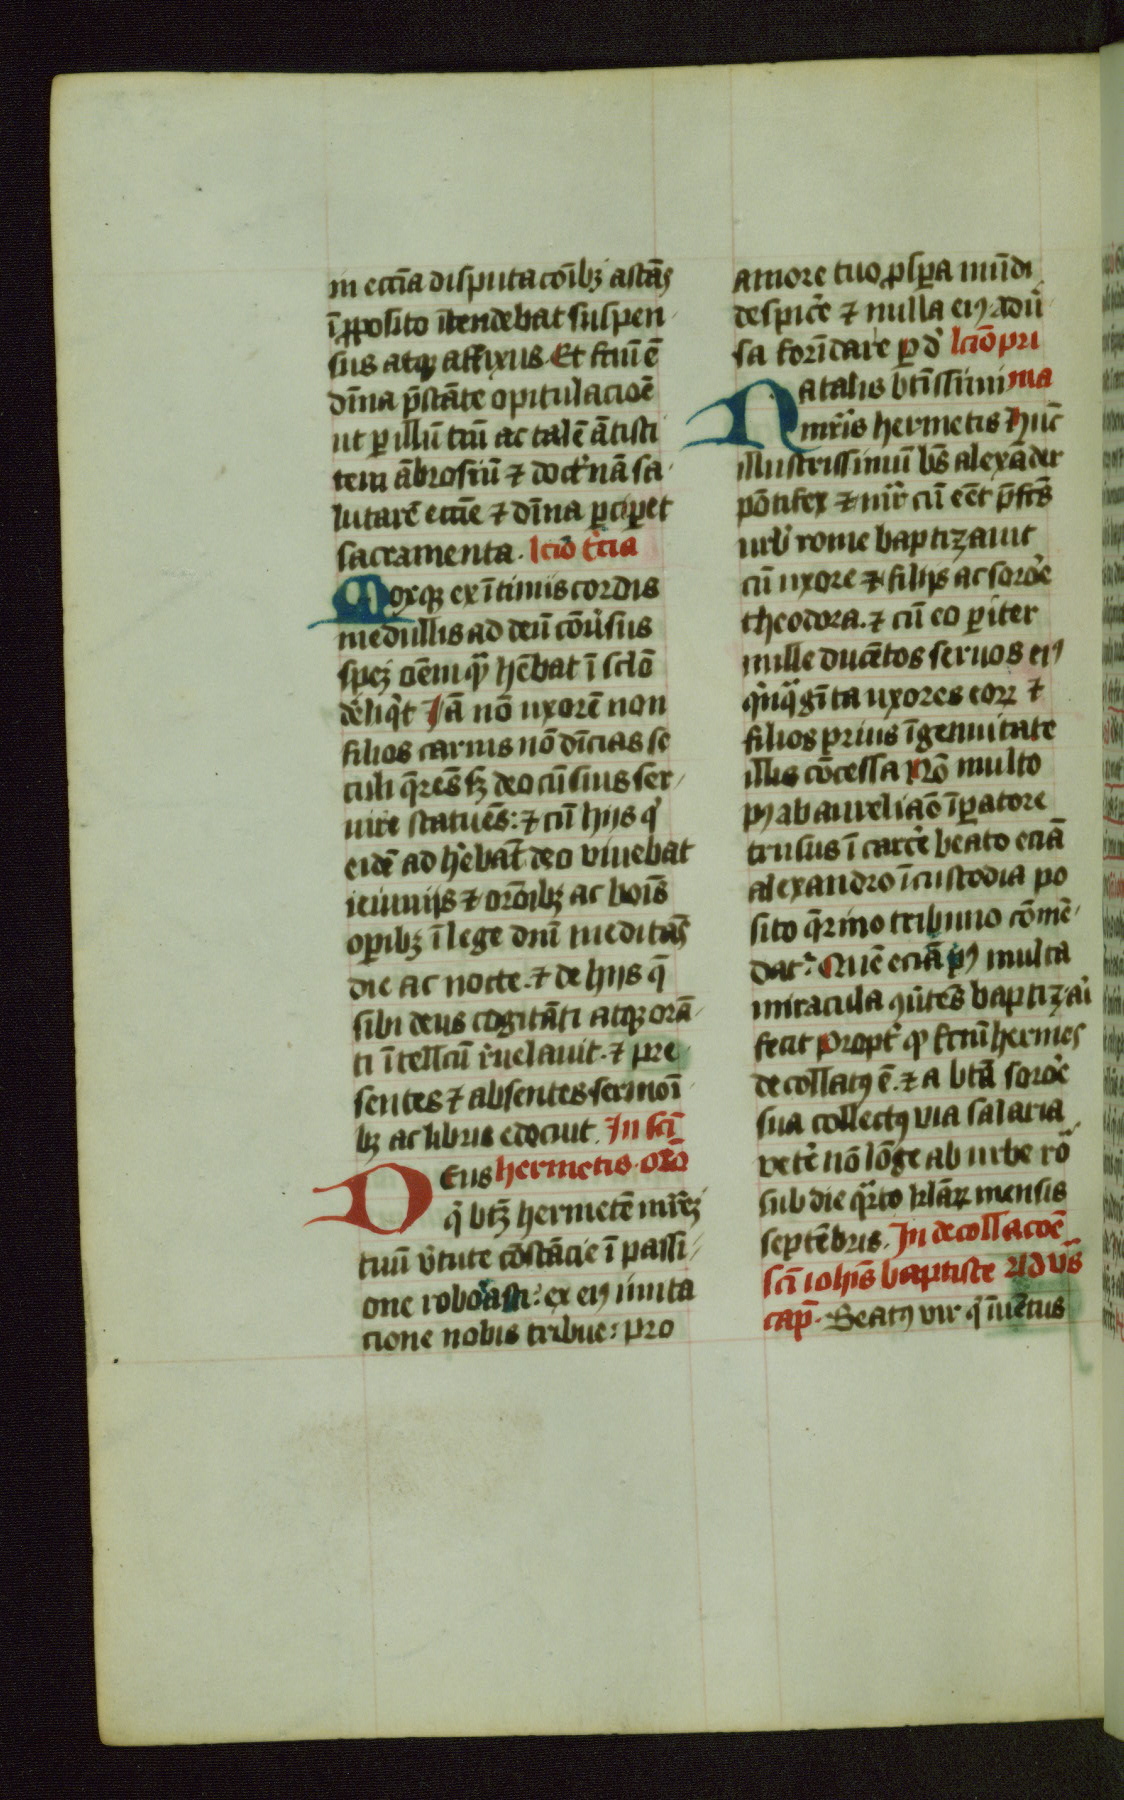 in ecc̄ia disputacōībꝫ astās̄
ī ꝓposito ītendebat suspen
sus atqꝫ affixus. Et fcm̄ ē
dīna p̄stāte opitulacioē
ut ꝑ illū tm̄ ac talē ātisti
tem ābrosiū ⁊ doctⁱnā sa
lutarē eccīe ⁊ dīna ꝑciꝑet
sacramenta. lcīo t̄cia
Moxqꝫ ex ītimis cordis
medullis ad deū cōv̄sus
speꝫ oēm qᷓ hēbat ī sclō
deliqⁱt Iā nō uxorē non
filios carnis nō dīcias se
culi q̄rēs sꝫ deo cū suis ser
uire statuēs: ⁊ cū hijs qⁱ
eidē adh̓ebāt deo viuebat
ieiunijs ⁊ orōībꝫ ac boīs
oꝑibꝫ ī lege dnī meditās̄
die ac nocte. ⁊ de hijs q̄
sibi deus cogitāti atqꝫ orā
ti ītellcm̄ r̓uelauit. ⁊ pre
sentes ⁊ absentes sermoī
bꝫ ac libris edocuit. In scī
Deus hermetis. orō
qⁱ btꝫ hermetē mr̄eꝫ
tuū v̓tute cōstācie ī passi
one roborasti: ex eiꝰ imita
cione nobis tribue: pro
amore tuo ꝓsꝑa mūdi
despic̓e ⁊ nulla eiꝰ adū
sa formīdare ꝑ d̓ lcīo pri
Natalis btīssimi ma
mr̄is hermetis Hūc
illustrissimū bs̄ alexāder
pōtifex ⁊ mr̄ cū eēt p̄fcs̄
urb̓ rome baptizauit
cū uxore ⁊ filijs ac soro̓e
theodora. ⁊ cū eo ꝑiter
mille ducētos seruos eiꝰ
qⁱnqᷓgīta uxores eoꝝ ⁊
filios prius īgenuitate
illis cōcessa Nō multo
pꝰ ab aureliāo īꝑatore
trusus ī carcē beato eciā
alexandro ī custodia po
sito qⁱrino tribuno cōmē
datʳ. Quē eciā pꝰ multa
miracula ꝯūtes̄ baptizāi
fecit Propt̓ qᷓ fctm̄ hermes
decollatꝰ ē. ⁊ a btā soro̓e
sua collectꝰ via salaria
vet̓e nō lōge ab urbe rō
sub die qᷓrto klāꝝ mensis
septēbris. In decollacoē
scī ioh̄is baptiste Ad vs̄
cap̄. Beatꝰ vir qⁱ īuētus